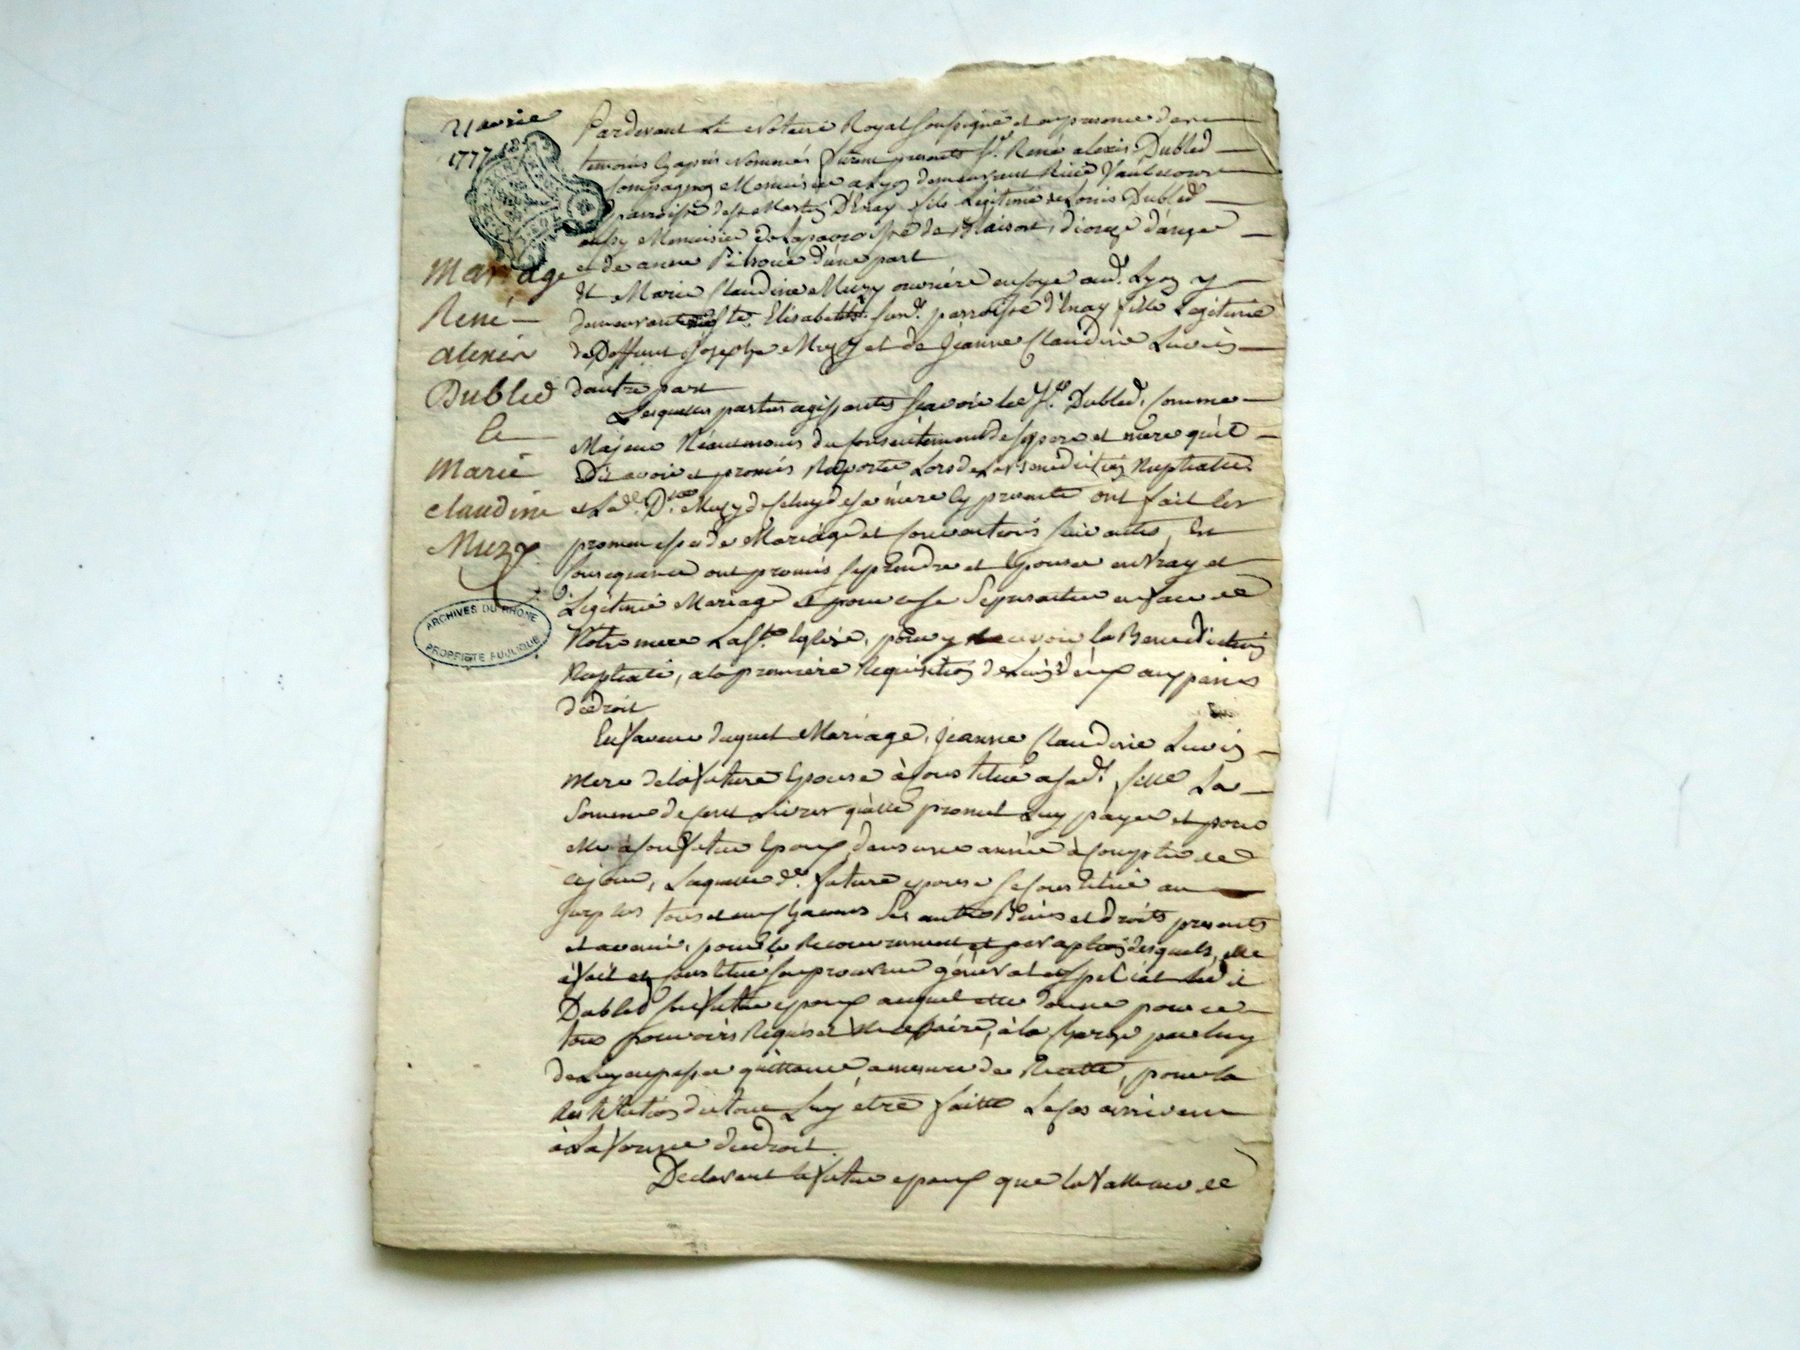 21 avril
1777
Mariage
René
alexis
Dubled
Et
Marie
claudine
Muzy
ARCHIVES DU RHÔNE
PROPRIÉTÉ PUBLIQUE
Pardevant Le Notaire Royal soussigné et en presence des
temoins cy après Nommés furent presents Sr. René alexis Dubled
Compagnon Menuisier a Lyon demeurant Rüe Vaubecour
parroisse de st Martin D'Enay fils Legitime de Louis Dubled
aussy Menuisier de la parroisse de
et de anne d'une part
Et Marie Claudine Muzy ouvriére en soye aud. Lyon y
demeurant Ste. Elisabeth susd. parroisse d'Enay fille Legitime
de Deffunt Joseph Muzy et de Jeanne Claudine Luvis
d'autre part
Lesquelles parties agissantes sçavoir led. Sr. Dubled, comme
Majeur Néanmoins du consentement de ses pere et mere qu'il
Dit avoir et promis Raporter Lors de La Benediction Nuptialle
et La de. Dlle. Muzy de celuy de sa mere cy presente ont fait les
promesses de Mariage et conventions suivantes, En
consequence ont promis se prendre et Epouser en vray et
Legitime Mariage et pour ce se Presenter en face de
Notre mere La Ste. Eglise, pour y recevoir la Benediction
Nuptiale, a la premiere Requisition de L'un d'eux aux peines
de droit
En faveur duquel Mariage, Jeanne Claudine Luvis
Mere de la future Epouse à constitué a sad. fille La
Somme de cent Livres qu'elle promet Luy payer et pour
elle à son futur Epoux dans une année à compter de
ce jour, Laquelle de. future epouse se constitue au
surplus tous et uns chacuns Ses autres Biens et droits presents
et avenir, pour le Recouvrement et desquels, elle
à fait et constitué son procureur général et special led.
Dubled son futur epoux auquel elle donne pour ce
tous pouvoirs Requis et Necessaire, à la charge par luy
de Luy en passer quittance, a mesure de Recette, pour la
Restitution du tout Luy etre faitte Le cas arrivant
à La forme du droit.
Declarant le futur epoux que la valleur de